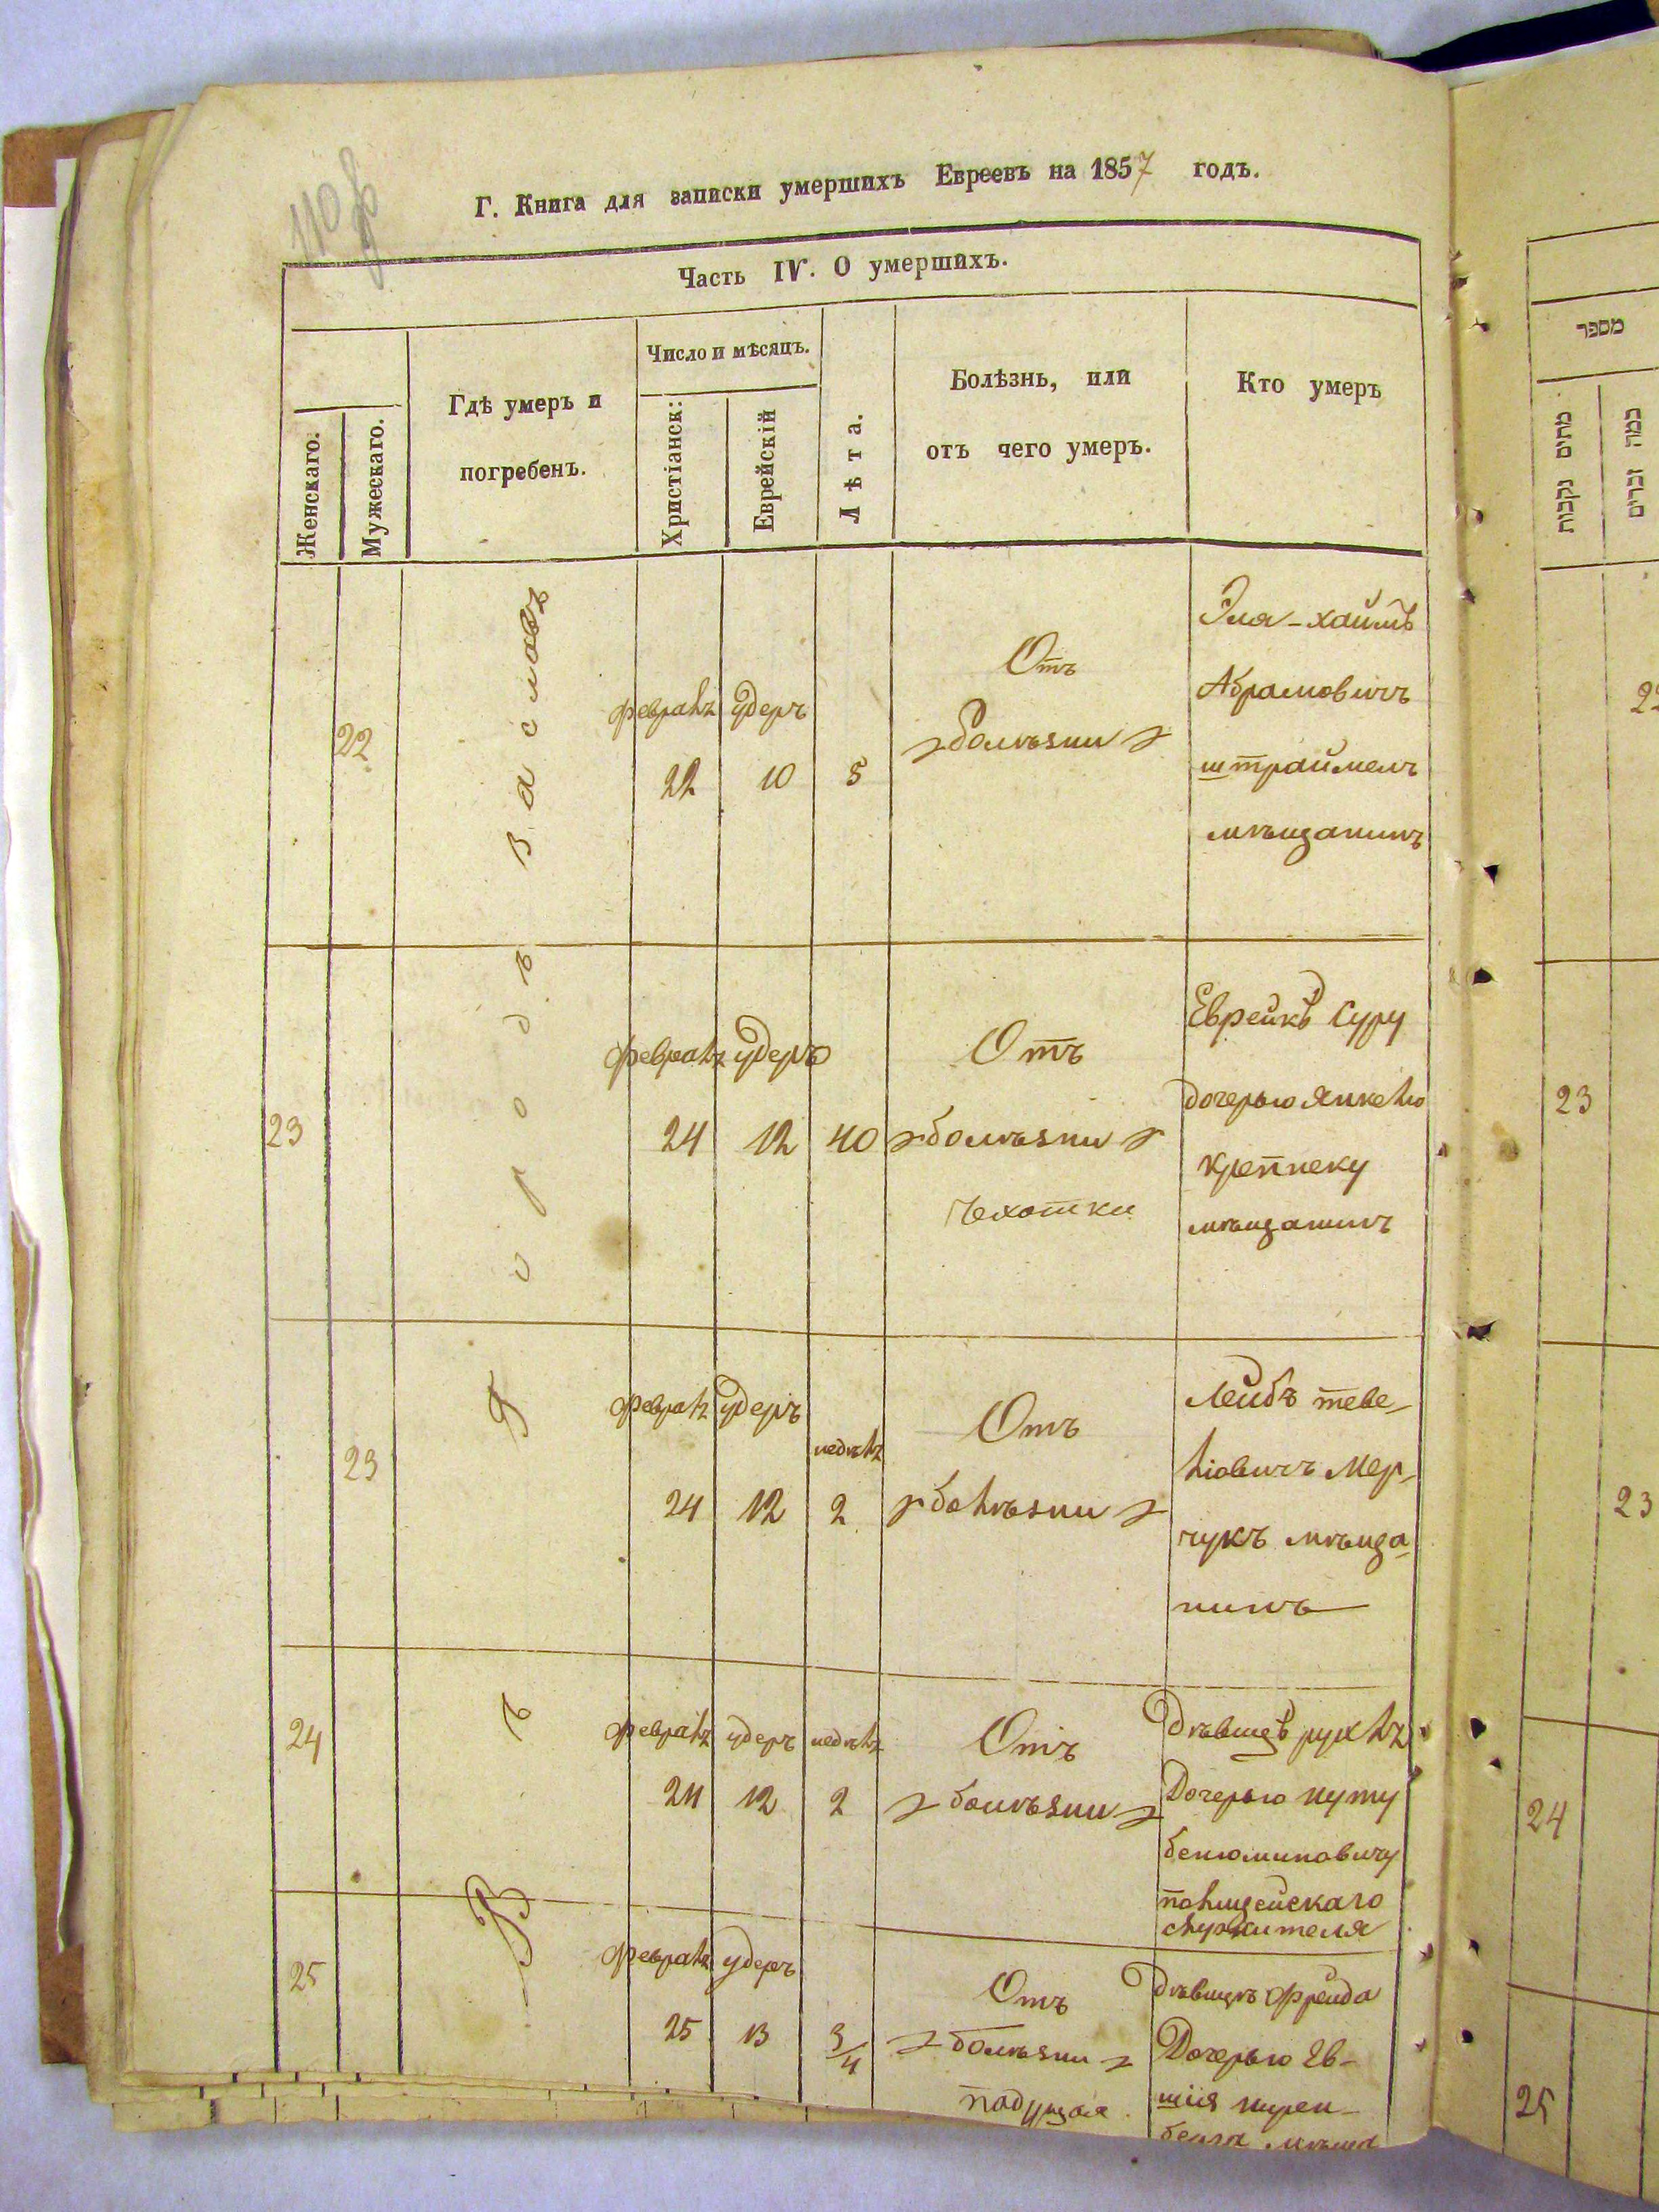 Г. Книга для записки умершихъ Евреевъ на 1857 годъ.
Часть IV. О умершихъ.
Женскаго.
Мужескаго.
Гдѣ умеръ и
погребенъ.
Число и мѣсяцъ.
Христіанск:
Еврейскій
Лѣта.
Болѣзнь, или
отъ чего умеръ.
Кто умеръ
Въ городѣ Заславѣ
22
февраль
22
удеръ
10
5
Отъ
болѣзни
Эля-хаимъ
Абрамовичъ
штраймелъ
мѣщанинъ
23
февраль
24
удеръ
12
40
Отъ
болѣзни
чехотки
Еврейкѣ Суру
дочерью Янкелю
мѣщанинъ
23
февраль
24
удеръ
12
недѣль
2
Отъ
болѣзни
Лейбъ теве-
ліовичъ Мер-
чукъ мѣща-
нинъ
24
февраль
24
удеръ
12
недѣль
2
Отъ
болѣзни
Дѣвицѣ рухль
Дочерью нуту
бенюминовичу
полицейскаго
служителя
25
февраль
25
удеръ
13
3/4
Отъ
болѣзни
падущая
Дѣвицѣ фрейда
Дочерью Ев-
шія нирен-
берга мѣща
מספר
מתים נקבות
כמה זכרים
22
23
23
24
25